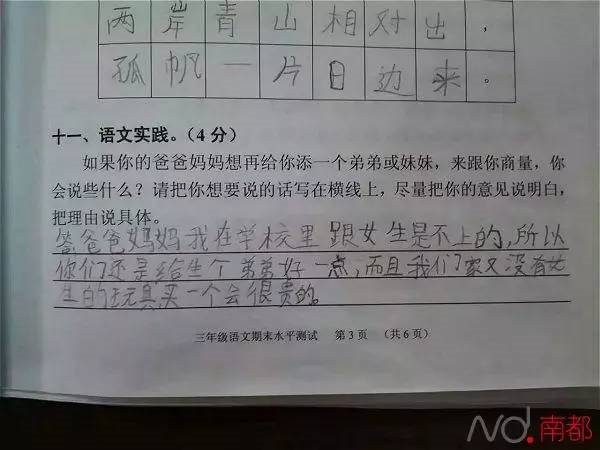 两岸青山相对出，
孤帆一片日边来。
十一、语文实践。（4分）
如果你的爸爸妈妈想再给你添一个弟弟或妹妹，来跟你商量，你
会说些什么？请把你想要说的话写在横线上，尽量把你的意见说明白，
把理由说具体。
答爸爸妈妈我在学校里跟女生是不上的，所以
你们还是给生个弟弟好一点，而且我们家又没有女
生的玩具买一个会很贵的。
三年级语文期末水平测试 第3页 （共6页）
nd.南都